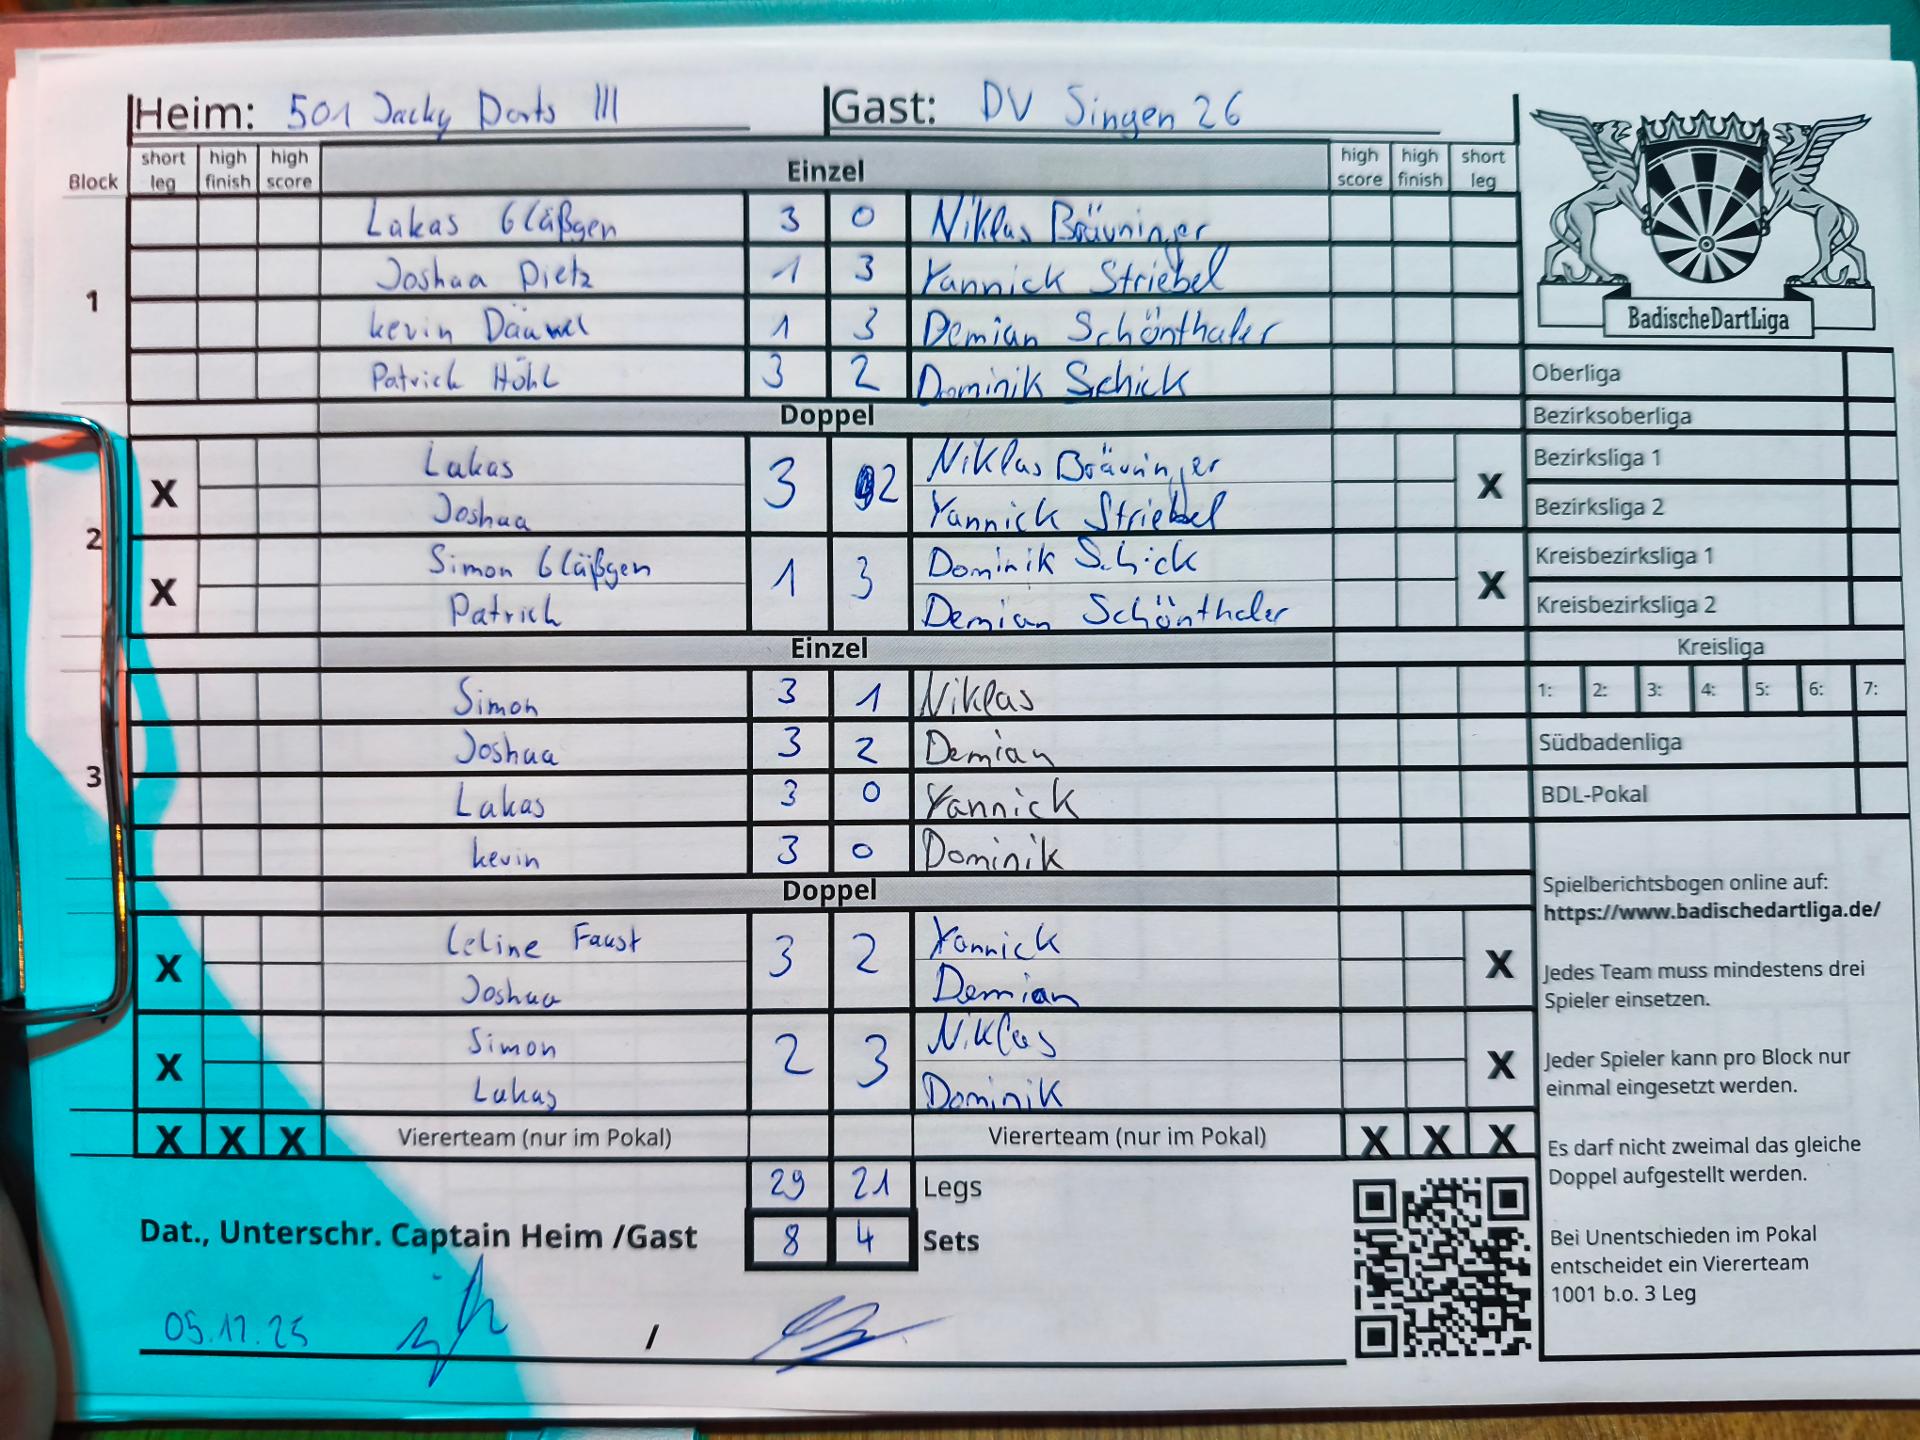 Heim: 501 Jacky Darts III Gast: DV Singen 26
Block short leg high finish high score Einzel high score high finish short leg
1
Lukas Gläßgen 3 0 Niklas Bräuninger
Joshua Dietz 1 3 Yannick Striebel
Kevin Däuwel 1 3 Demian Schönthaler
Patrick Höhl 3 2 Dominik Schick
Doppel
2
X Lukas 3 2 Niklas Bräuninger X
Joshua Yannick Striebel
X Simon Gläßgen 1 3 Dominik Schick X
Patrick Demian Schönthaler
Einzel
3
Simon 3 1 Niklas
Joshua 3 2 Demian
Lukas 3 0 Yannick
Kevin 3 0 Dominik
Doppel
X Celine Faust 3 2 Yannick X
Joshua Demian
X Simon 2 3 Niklas X
Lukas Dominik
X X X Viererteam (nur im Pokal) Viererteam (nur im Pokal) X X X
29 21 Legs
8 4 Sets
Dat., Unterschr. Captain Heim /Gast
05.12.25 /
BadischeDartLiga
Oberliga
Bezirksoberliga
Bezirksliga 1
Bezirksliga 2
Kreisbezirksliga 1
Kreisbezirksliga 2
Kreisliga
1: 2: 3: 4: 5: 6: 7:
Südbadenliga
BDL-Pokal
Spielberichtsbogen online auf:
https://www.badischedartliga.de/
Jedes Team muss mindestens drei
Spieler einsetzen.
Jeder Spieler kann pro Block nur
einmal eingesetzt werden.
Es darf nicht zweimal das gleiche
Doppel aufgestellt werden.
Bei Unentschieden im Pokal
entscheidet ein Viererteam
1001 b.o. 3 Leg